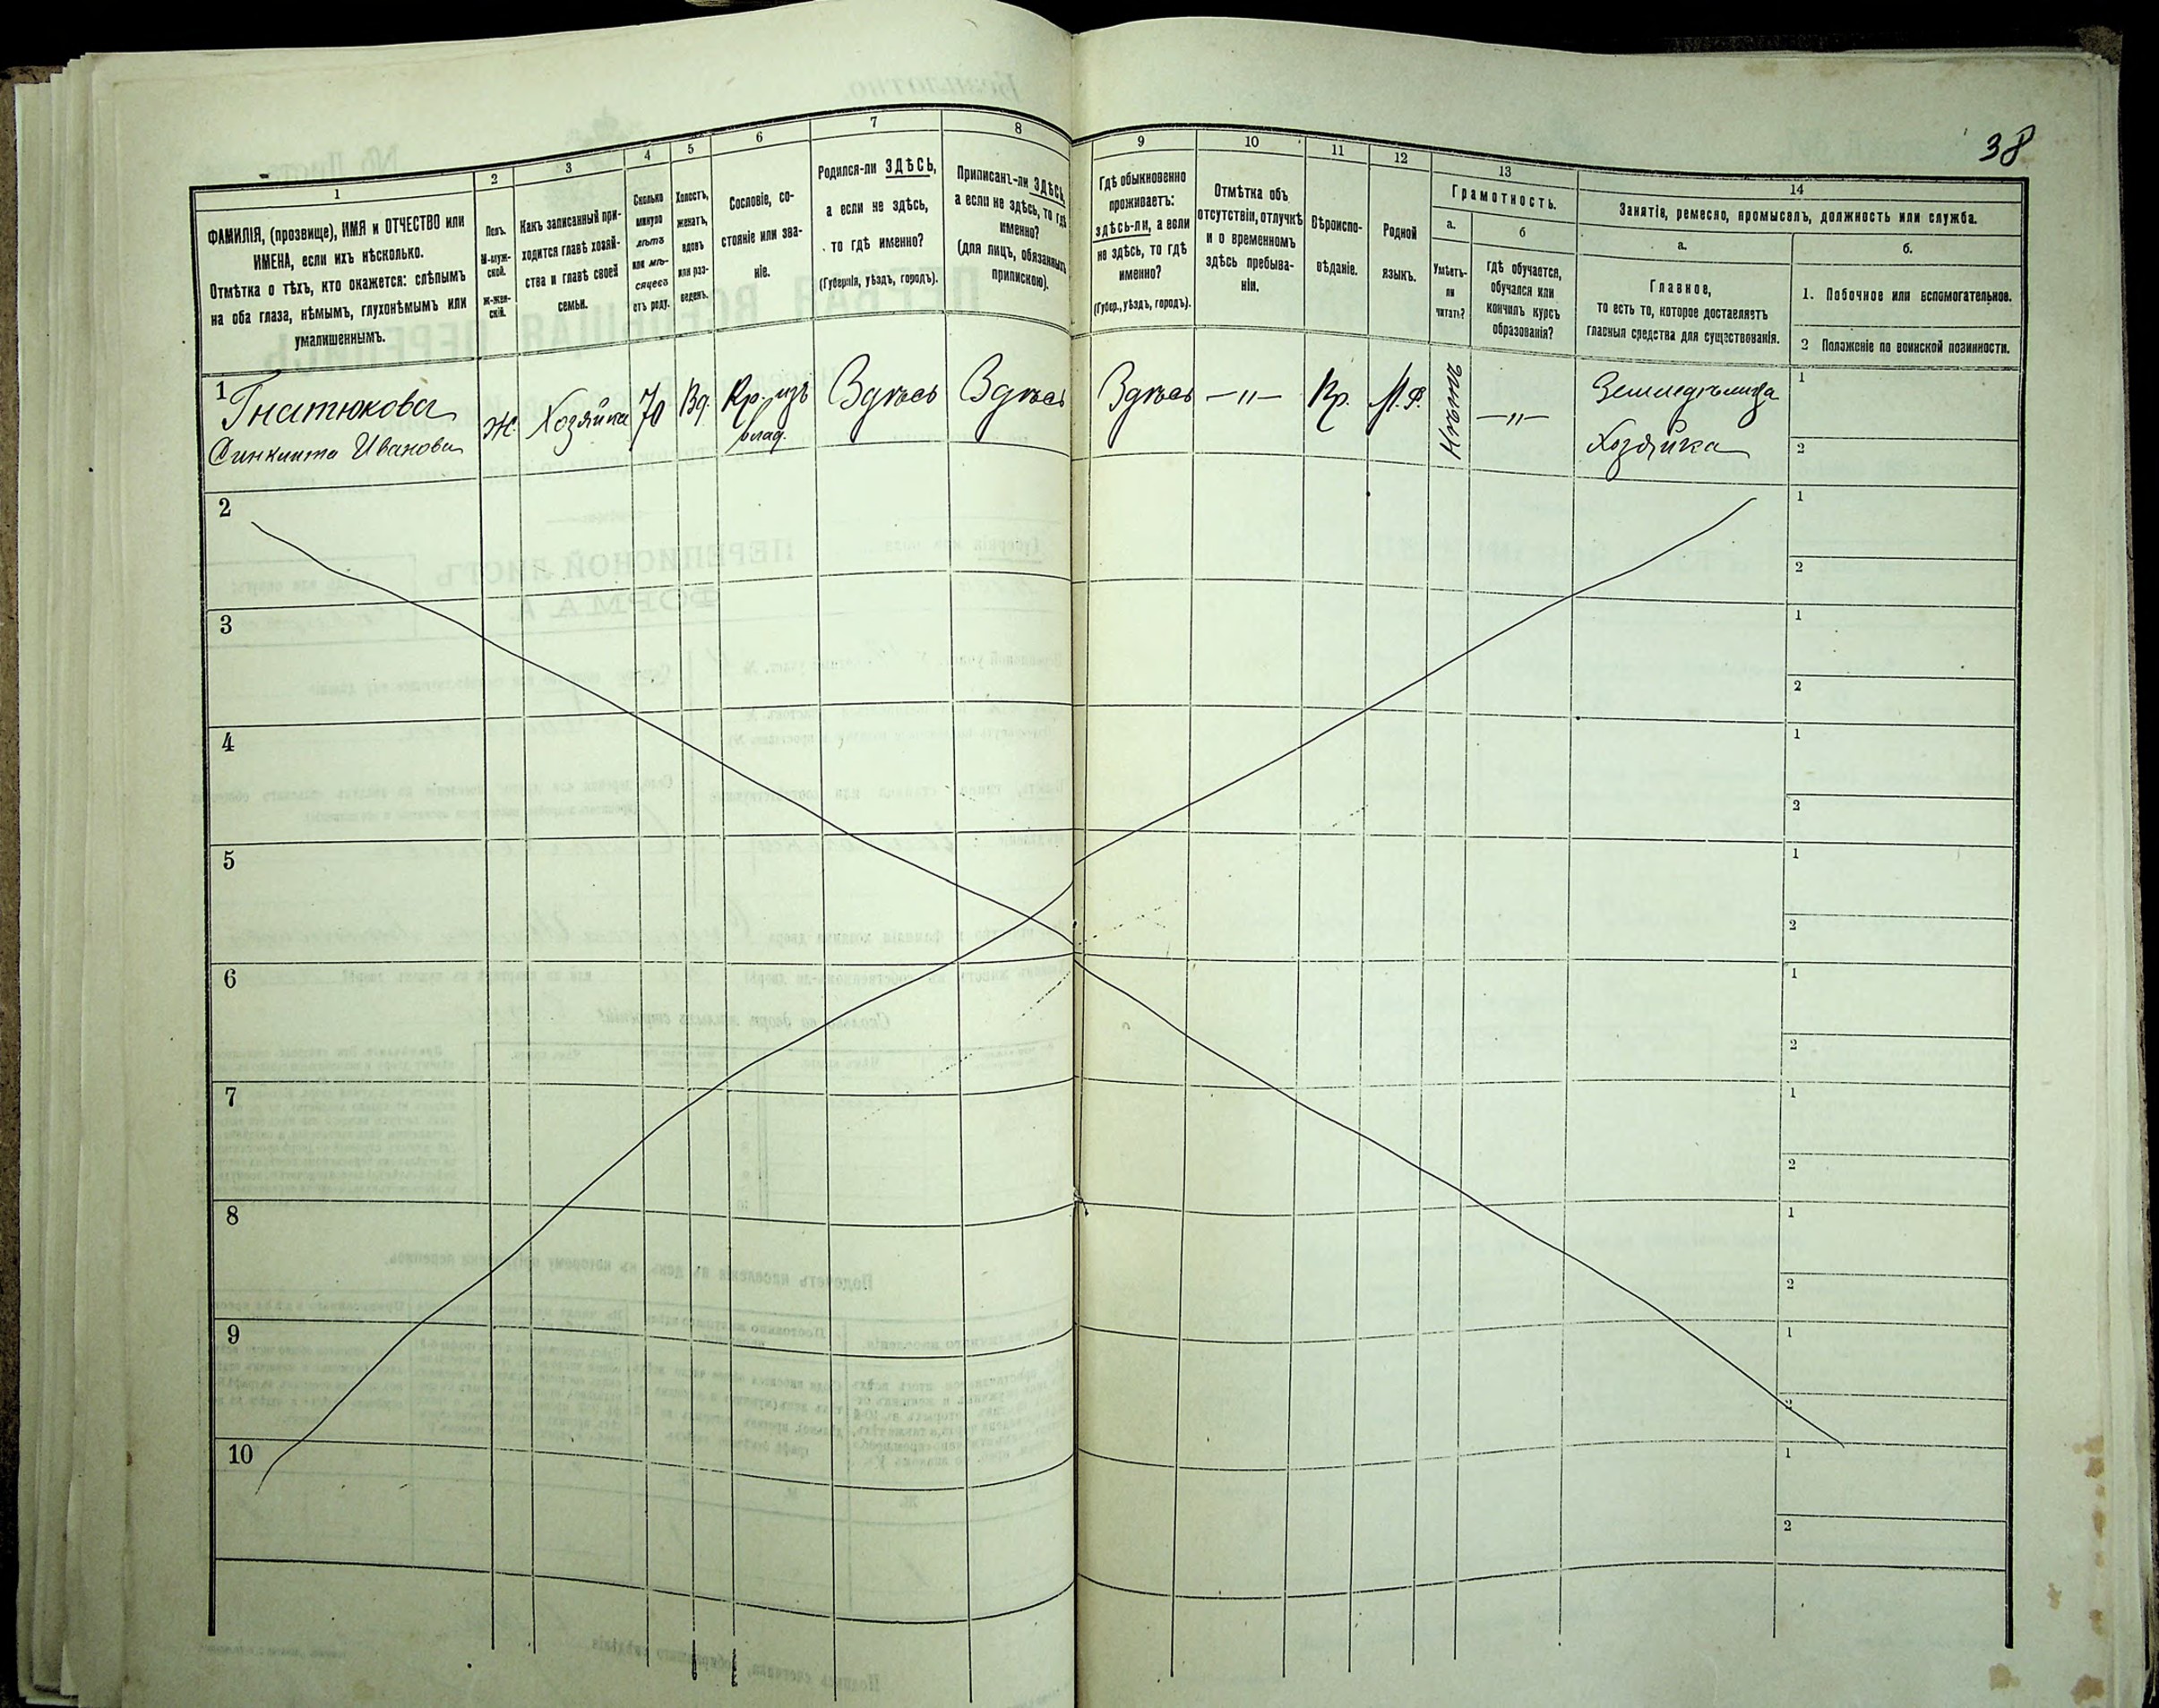 38
1
ФАМИЛІЯ, (прозвище), ИМЯ и ОТЧЕСТВО или
ИМЕНА, если ихъ нѣсколько.
Отмѣтка о тѣхъ, кто окажется: слѣпымъ
на оба глаза, нѣмымъ, глухонѣмымъ или
умалишеннымъ.
2
Полъ.
М-муж-
ской.
ж-жен-
скій.
3
Какъ записанный при-
ходится главѣ хозяй-
ства и главѣ своей
семьи.
4
Сколько
минуло
лѣтъ
или мѣ-
сяцевъ
отъ роду.
5
Холостъ,
женатъ,
вдовъ
или раз-
веденъ.
6
Сословіе, со-
стояніе или зва-
ніе.
7
Родился-ли ЗДѢСЬ,
а если не здѣсь,
то гдѣ именно?
(Губернія, уѣздъ, городъ).
8
Приписанъ-ли ЗДѢСЬ,
а если не здѣсь, то гдѣ
именно?
(для лицъ, обязанныхъ
припискою).
9
Гдѣ обыкновенно
проживаетъ:
здѣсь-ли, а если
не здѣсь, то гдѣ
именно?
(Губер., уѣздъ, городъ).
10
Отмѣтка объ
отсутствіи, отлучкѣ
и о временномъ
здѣсь пребыва-
ніи.
11
Вѣроиспо-
вѣданіе.
12
Родной
языкъ.
13
Грамотность.
а.
Умѣетъ-
ли
читать?
б
гдѣ обучается,
обучался или
кончилъ курсъ
образованія?
14
Занятіе, ремесло, промыселъ, должность или служба.
а.
Главное,
то есть то, которое доставляетъ
главныя средства для существованія.
б.
1. Побочное или вспомогательное.
2 Положеніе по воинской повинности.
1
Гнатюкова
Синклита Иванова
ж.
Хозяйка
70
Вд.
Кр. изъ
влад.
Здѣсь
Здѣсь
Здѣсь
—„—
Пр.
М.Р.
Нѣтъ
—„—
Земледѣлица
Хозяйка
1
2
2
1
2
3
1
2
4
1
2
5
1
2
6
1
2
7
1
2
8
1
2
9
1
2
10
1
2